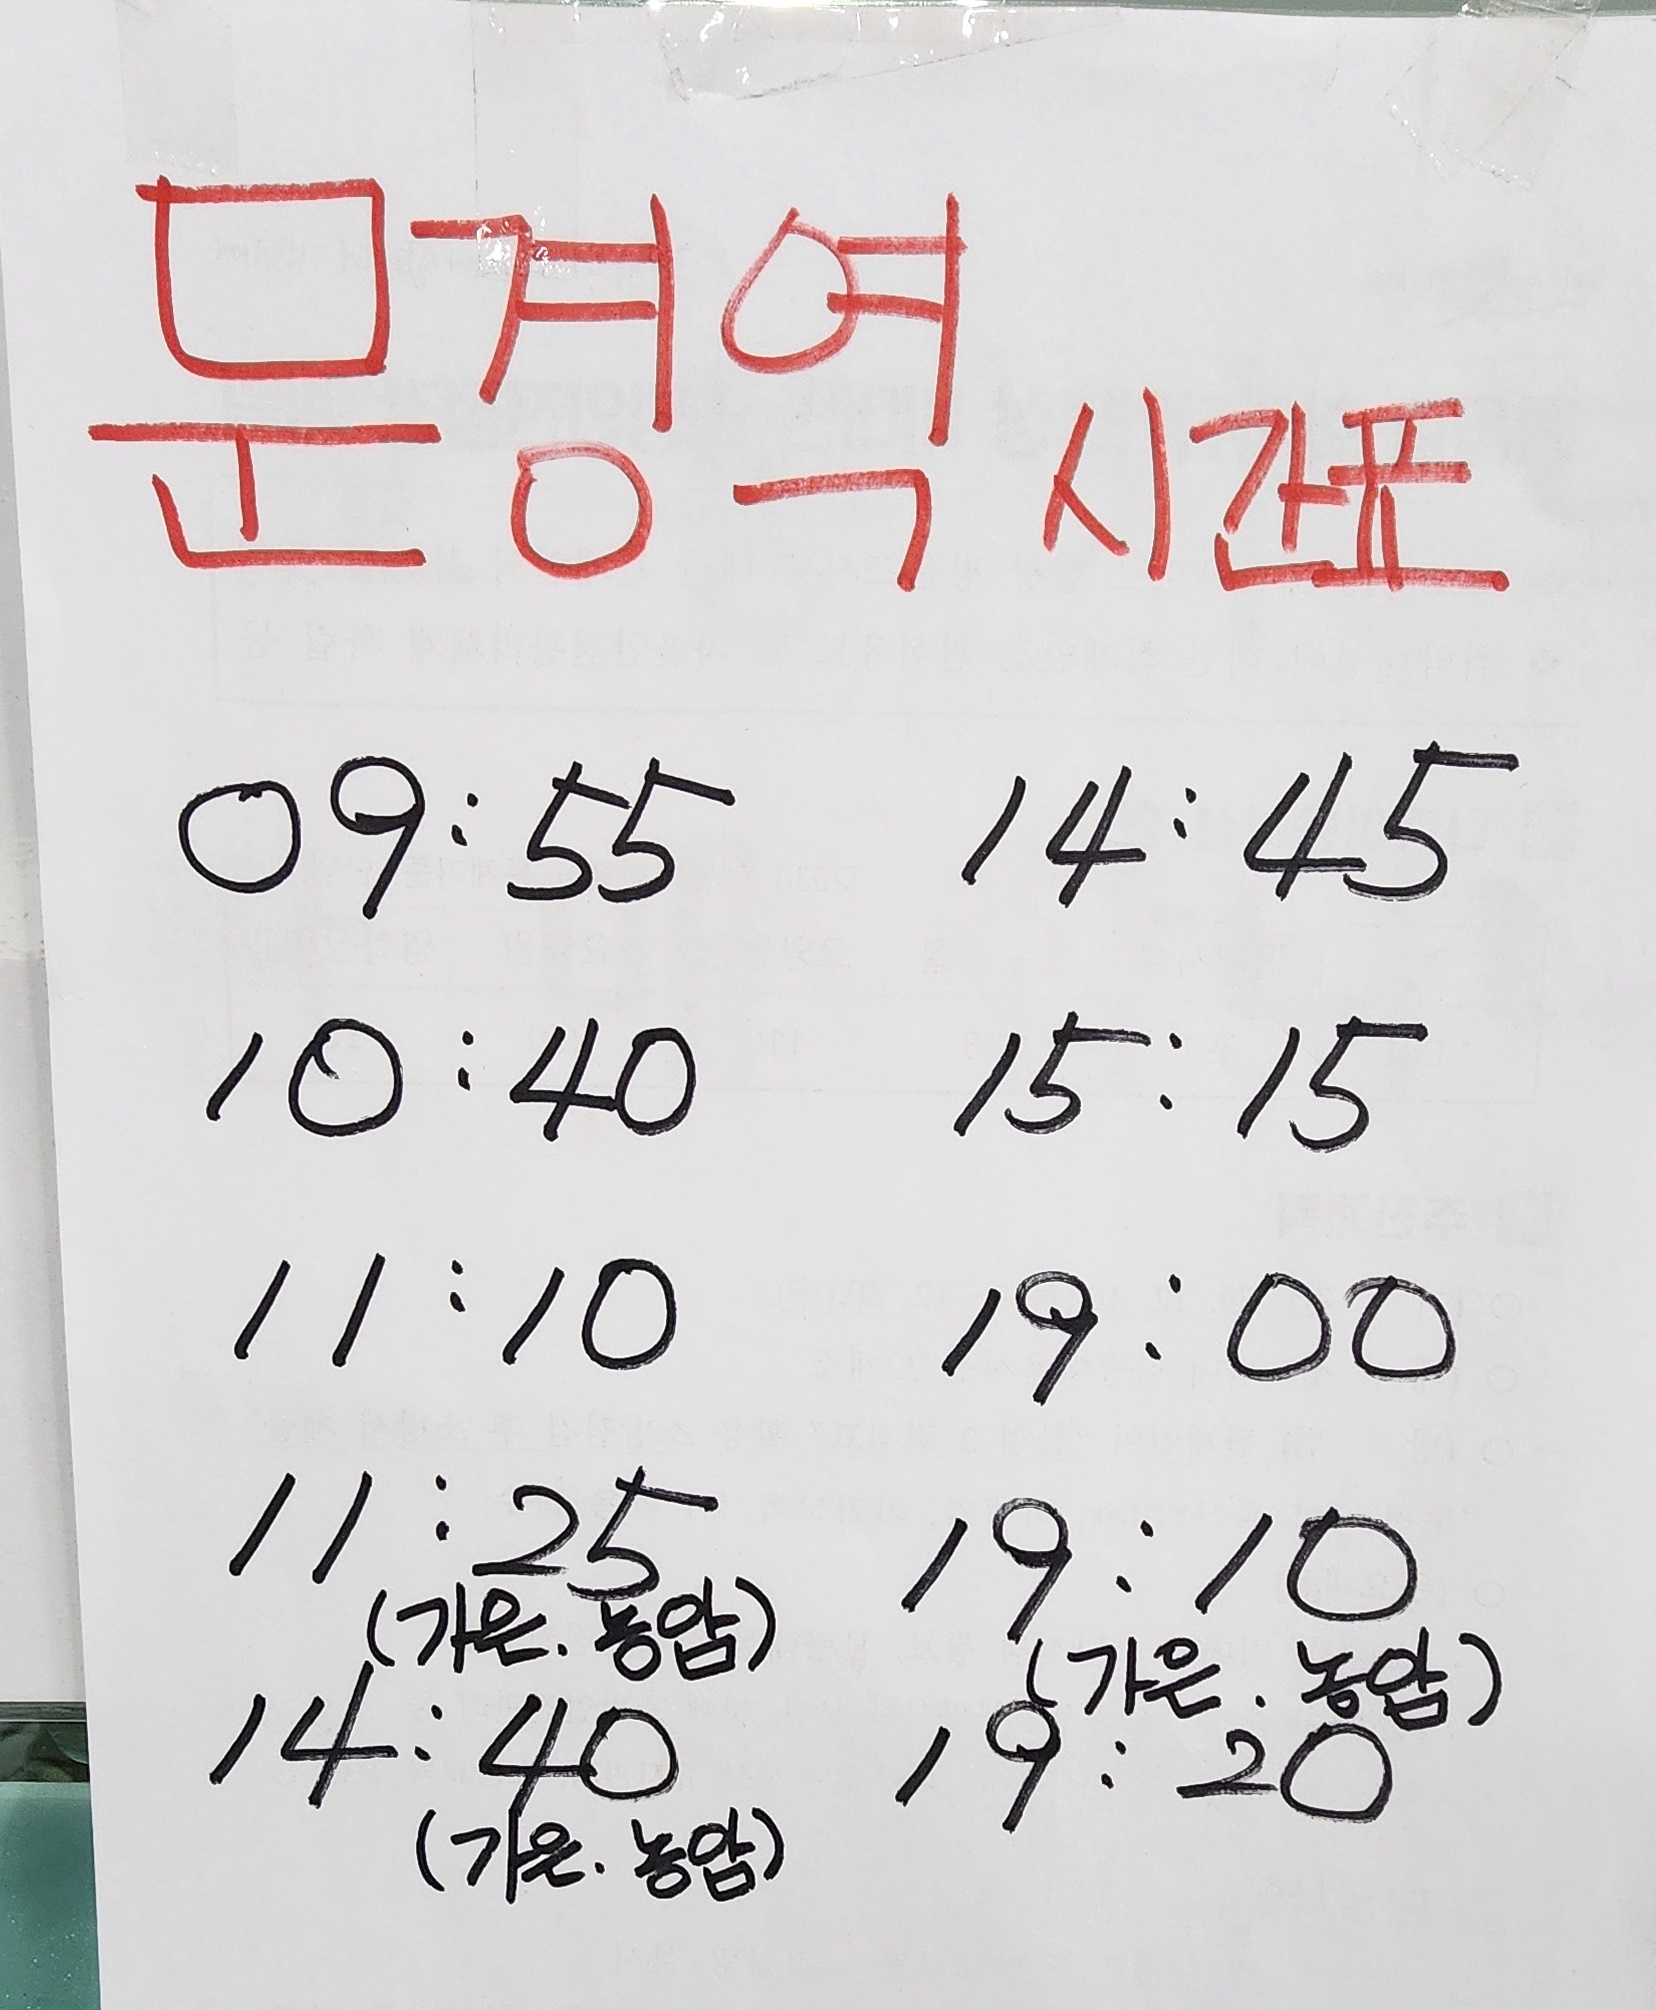 문경역 시간표
09:55
10:40
11:10
11:25
(가은.농암)
14:40
(가은.농암)
14:45
15:15
19:00
19:10
(가은.농암)
19:20